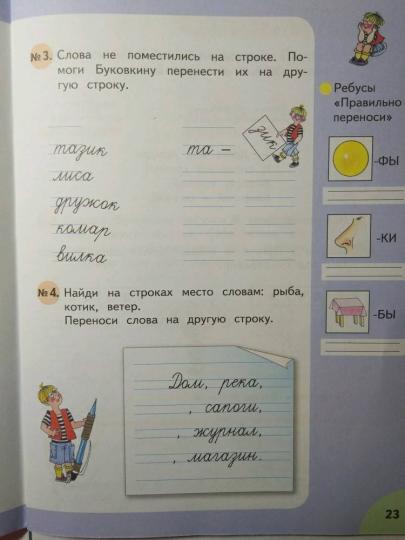 №3. Слова не поместились на строке. По-
моги Буковкину перенести их на дру-
гую строку.
тазик та – зик
лиса
дружок
комар
вилка
№4. Найди на строках место словам: рыба,
котик, ветер.
Переноси слова на другую строку.
Дом, река,
, сапоги,
, журнал,
, магазин.
Ребусы
«Правильно
переноси»
-ФЫ
-КИ
-БЫ
23